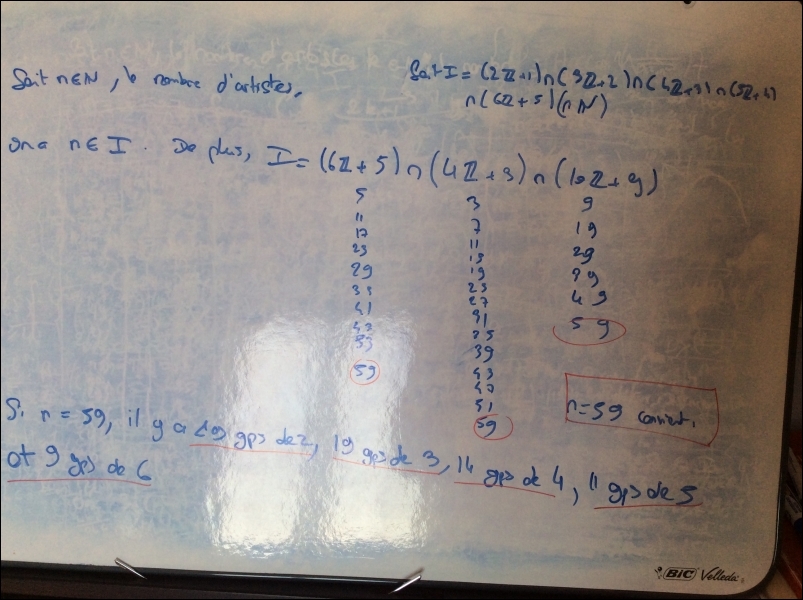 Soit n∈N, le nombre d'artistes,
Soit I = (2Z+1)∩(3Z+2)∩(4Z+3)∩(5Z+4)
∩(6Z+5)(∩N)
on a n∈I. De plus, I = (6Z+5)∩(4Z+3)∩(10Z+9)
5 3 9
11 7 19
17 11 29
23 15
29 19 49
23
41 27 59
39
59 43
47
51
59
n=59 convient.
Si n = 59, il y a 29 gps de 2, 19 gps de 3, 14 gps de 4, 11 gps de 5
et 9 gps de 6
BIC Velleda